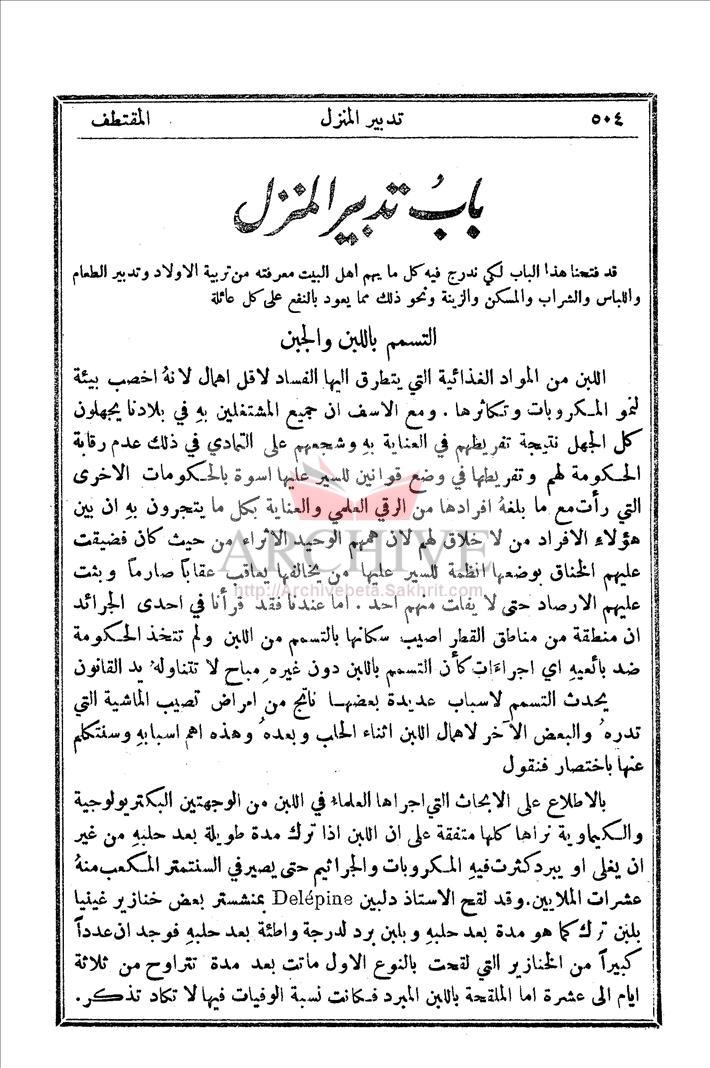 ٥٠٤ تدبير المنزل المقتطف
بابُ تدبير المنزل
قد فتحنا هذا الباب لكي ندرج فيه كل ما يهم اهل البيت معرفته من تربية الاولاد وتدبير الطعام
واللباس والشراب والمسكن والزينة ونحو ذلك مما يعود بالنفع على كل عائلة
التسمم باللبن والجبن
اللبن من المواد الغذائية التي يتطرق اليها الفساد لاقل اهمال لانهُ اخصب بيئة
لنمو المكروبات وتكاثرها . ومع الاسف ان جميع المشتغلين بهِ في بلادنا يجهلون
كل الجهل نتيجة تفريطهم في العناية بهِ وشجعهم على التمادي في ذلك عدم رقابة
الحكومة لهم وتفريطها في وضع قوانين للسير عليها اسوة بالحكومات الاخرى
التي رأت مع ما بلغهُ افرادها من الرقي العلمي والعناية بكل ما يتجرون بهِ ان بين
هؤلاءِ الافراد من لا خلاق لهم لان همهم الوحيد الاثراء من حيث كان فضيقت
عليهم الخناق بوضعها انظمة للسير عليها من يخالفها يعاقب عقاباً صارماً وبثت
عليهم الارصاد حتى لا يفلت منهم احد . اما عندنا فقد قرأنا في احدى الجرائد
ان منطقة من مناطق القطر اصيب سكانها بالتسمم من اللبن ولم تتخذ الحكومة
ضد بائعيهِ اي اجراءَات كأن التسمم باللبن دون غيرهِ مباح لا تتناولهُ يد القانون
يحدث التسمم لاسباب عديدة بعضها ناتج من امراض تصيب الماشية التي
تدرهُ والبعض الآخر لاهمال اللبن اثناء الحلب وبعدهُ وهذه اهم اسبابهِ وسنتكلم
عنها باختصار فنقول
بالاطلاع على الابحاث التي اجراها العلماء في اللبن من الوجهتين البكتريولوجية
والكيماوية نراها كلها متفقة على ان اللبن اذا ترك مدة طويلة بعد حلبهِ من غير
ان يغلى او يبرد كثرت فيهِ المكروبات والجراثيم حتى يصير في السنتمتر المكعب منهُ
عشرات الملايين. وقد لقح الاستاذ دلبين Delépine بمنشستر بعض خنازير غينيا
بلبن ترك كما هو مدة بعد حلبهِ وبلبن برد لدرجة واطئة بعد حلبهِ فوجد ان عدداً
كبيراً من الخنازير التي لقحت بالنوع الاول ماتت بعد مدة تتراوح من ثلاثة
ايام الى عشرة اما الملقحة باللبن المبرد فكانت نسبة الوفيات فيها لا تكاد تذكر.
ARCHIVE
http://Archivebeta.Sakhrit.com